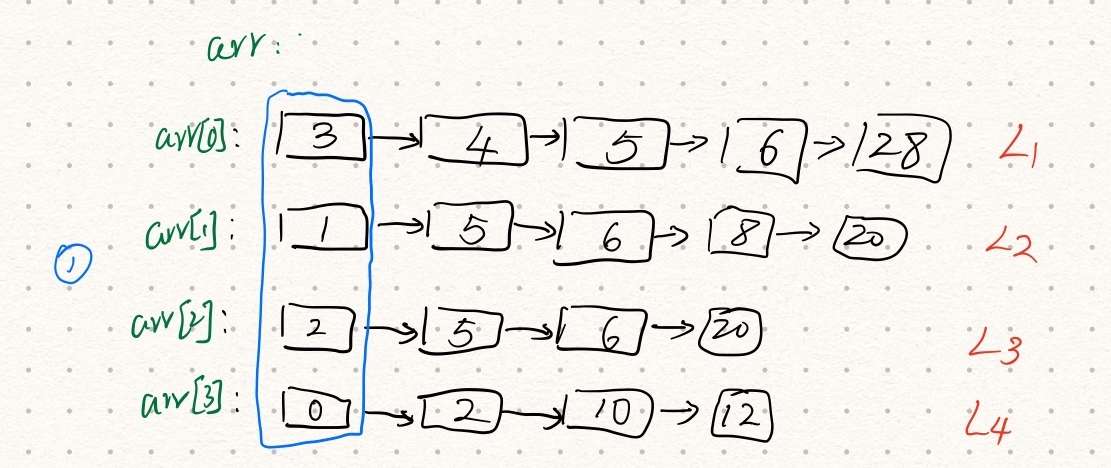 arr:
arr[0]: 3 4 5 6 28 L1
arr[1]: 1 5 6 8 20 L2
1
arr[2]: 2 5 6 20 L3
arr[3]: 0 2 10 12 L4